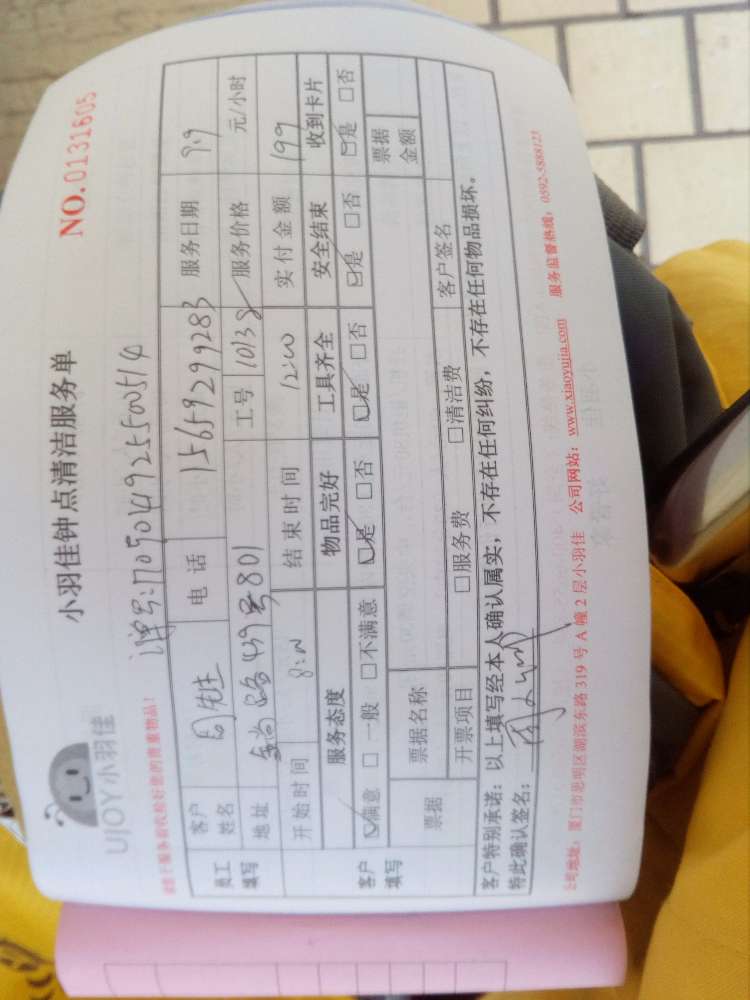 UJOY小羽佳
小羽佳钟点清洁服务单
NO.0131605
单号:170904925500514
客户姓名 周先生 电话 15659299283 服务日期 9.9
员工填写
地址 金尚路439号801 工号 10138 服务价格 元/小时
开始时间 8:00 结束时间 12:00 实付金额 199
服务态度 物品完好 工具齐全 安全结束 收到卡片
客户填写
☑满意 □一般 □不满意 ☑是 □否 ☑是 □否 ☑是 □否 ☑是 □否
票据 票据名称 票据金额
开票项目 □服务费 □清洁费 客户签名
客户特别承诺：以上填写经本人确认属实，不存在任何纠纷，不存在任何物品损坏。
特此确认签名：
公司地址：厦门市思明区湖滨东路 319 号 A 幢 2 层小羽佳 公司网站：www.xiaoyujia.com 服务监督热线：0592-5888123